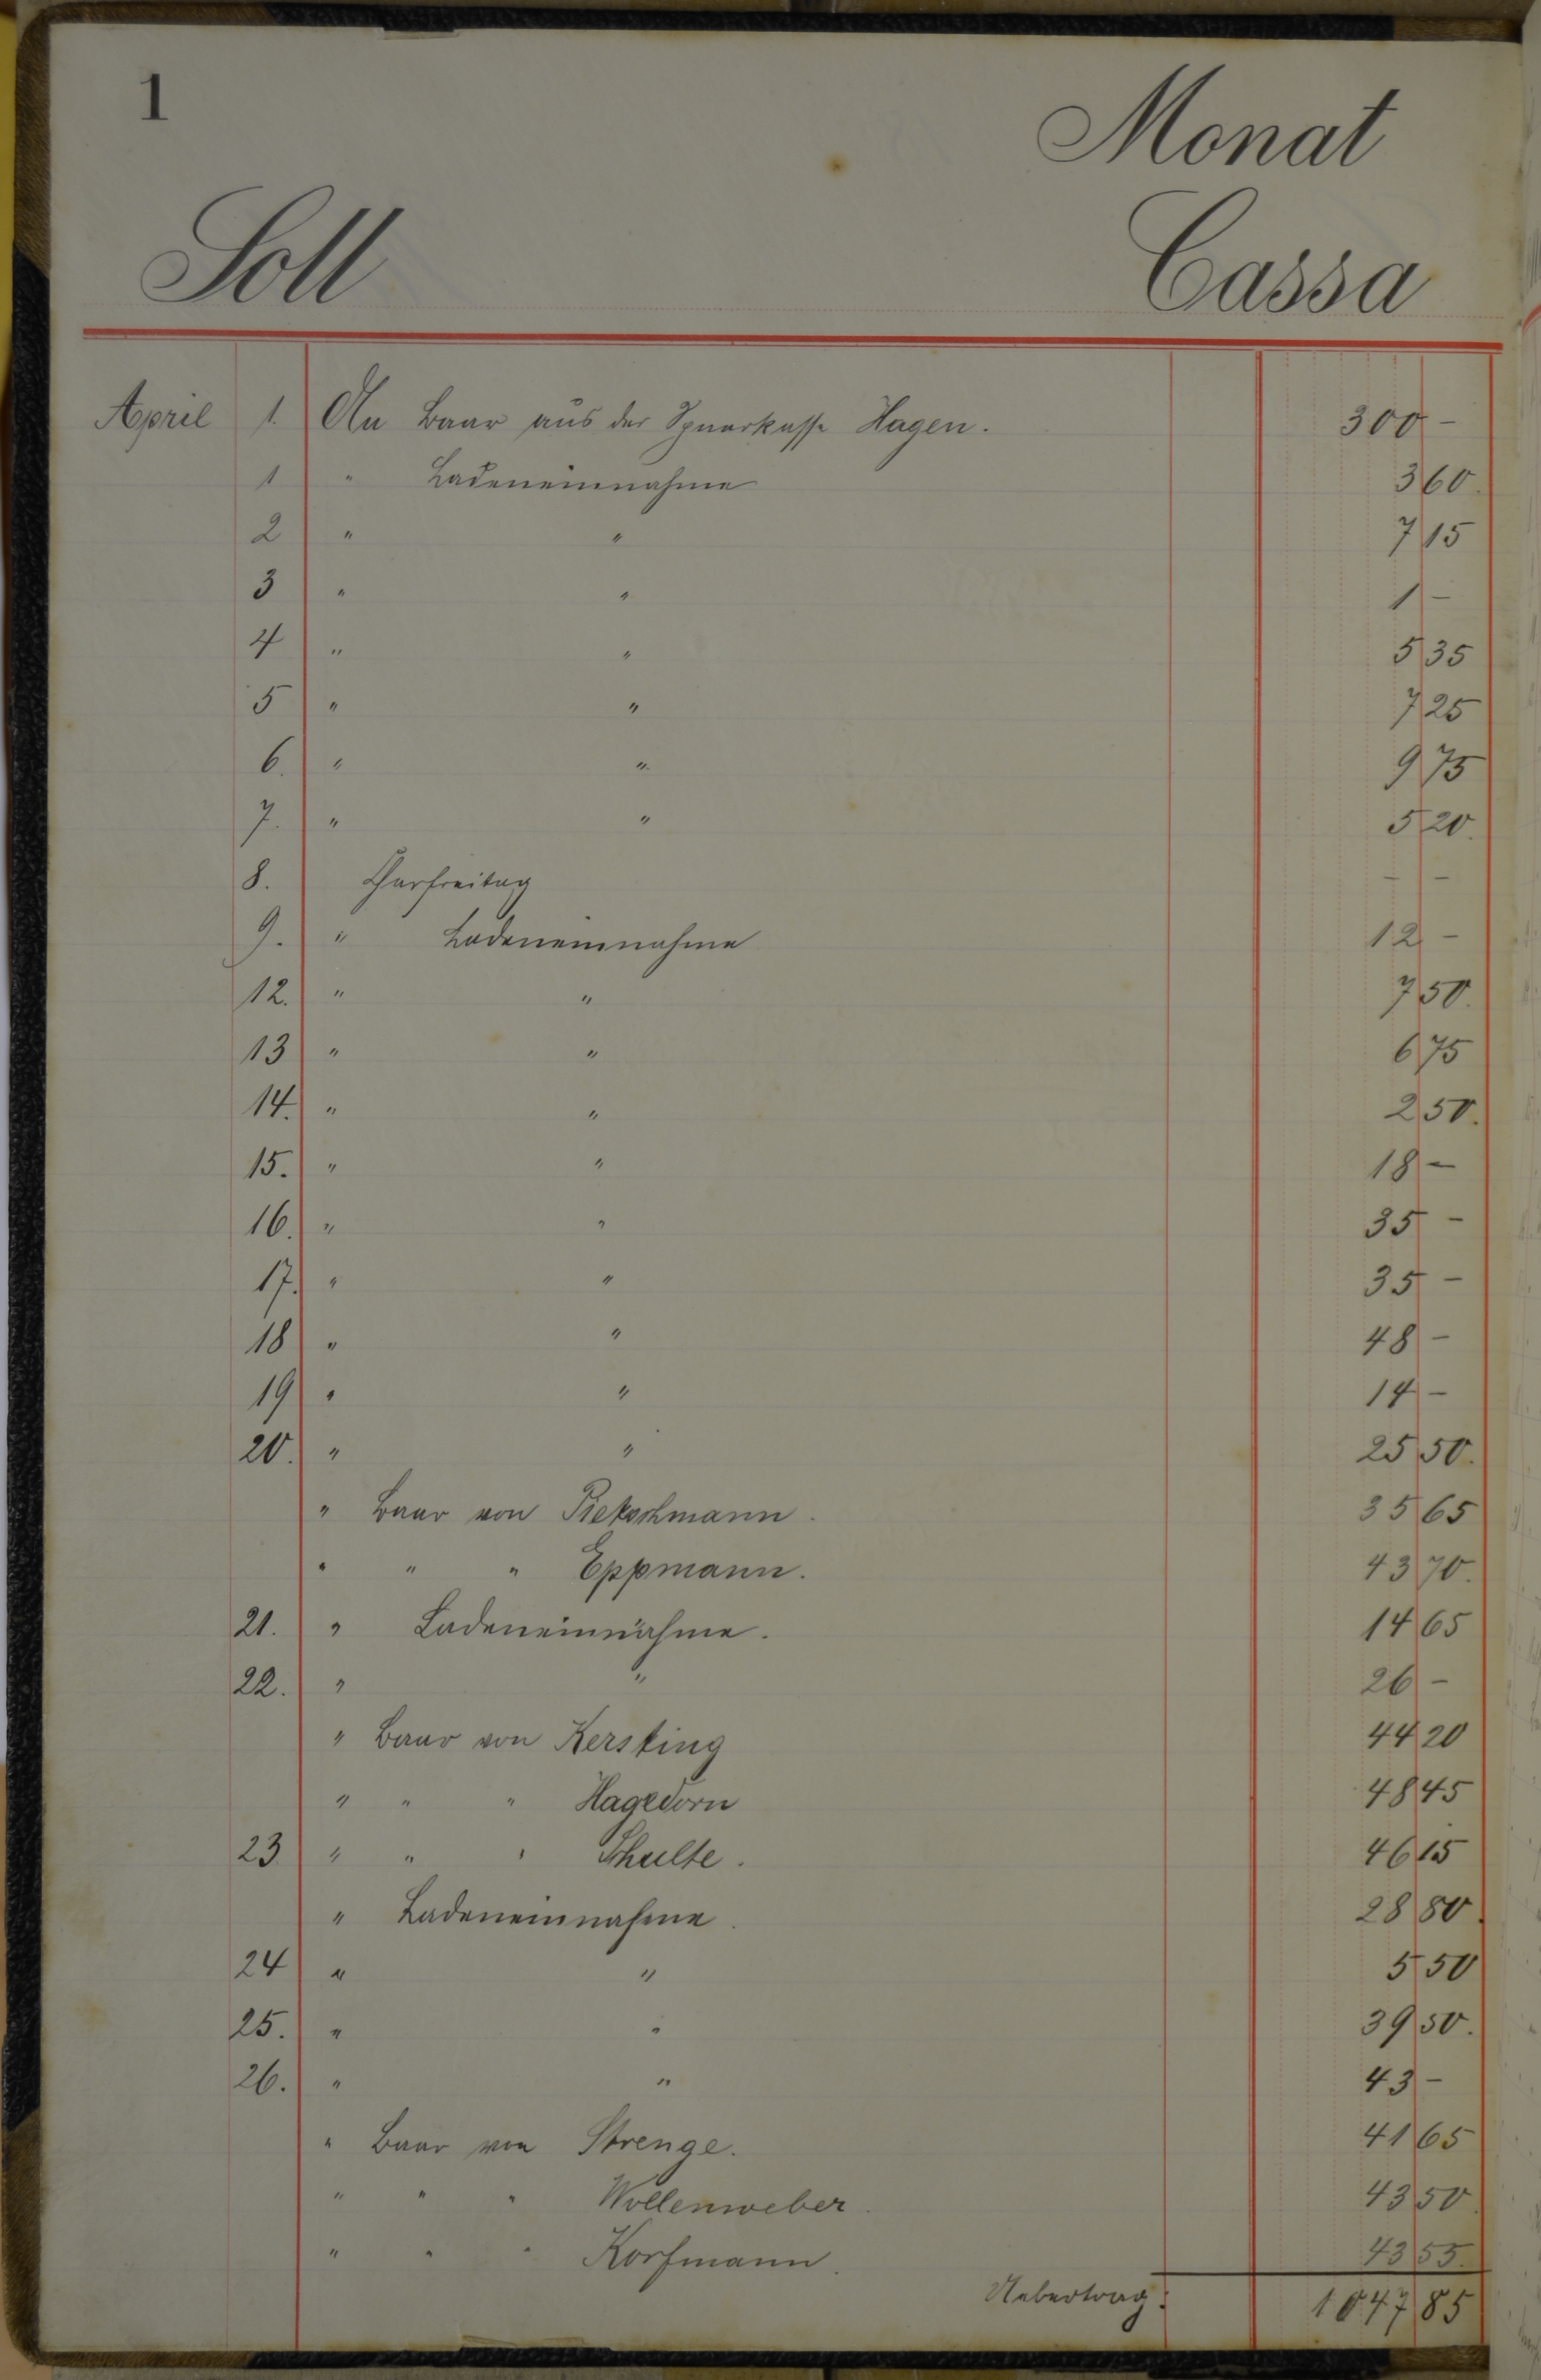 1
Monat
Soll Cassa
April 1. An Baar aus der Sparkasse Hagen. 300 -
1 " Ladeneinnahme 3 60.
2 " " 7 15
3 " " 1 -
4 " " 5 35
5 " " 7 25
6. " " 9 75
7. " " 5 20.
8. Charfreitag - -
9. " Ladeneinnahme 12 -
12. " " 7 50.
13 " " 6 75
14. " " 2 50.
15. " " 18 -
16. " " 35 -
17. " " 35 -
18 " " 48 -
19 " " 14 -
20. " " 25 50.
" Baar von Pietschmann. 35 65
" " " Eppmann. 43 70.
21. " Ladeneinnahme. 14 65
22. " " 26 -
" Baar von Kersting 44 20
" " " Hagedorn 48 45
23 " " " Schulte. 46 15
" Ladeneinnahme. 28 80.
24 " " 5 50
25. " " 39 50.
26. " " 43 -
" Baar von Strenge. 41 65
" " " Wollenweber. 43 50
" " " Korfmann. 43 55.
Uebertrag: 1047 85